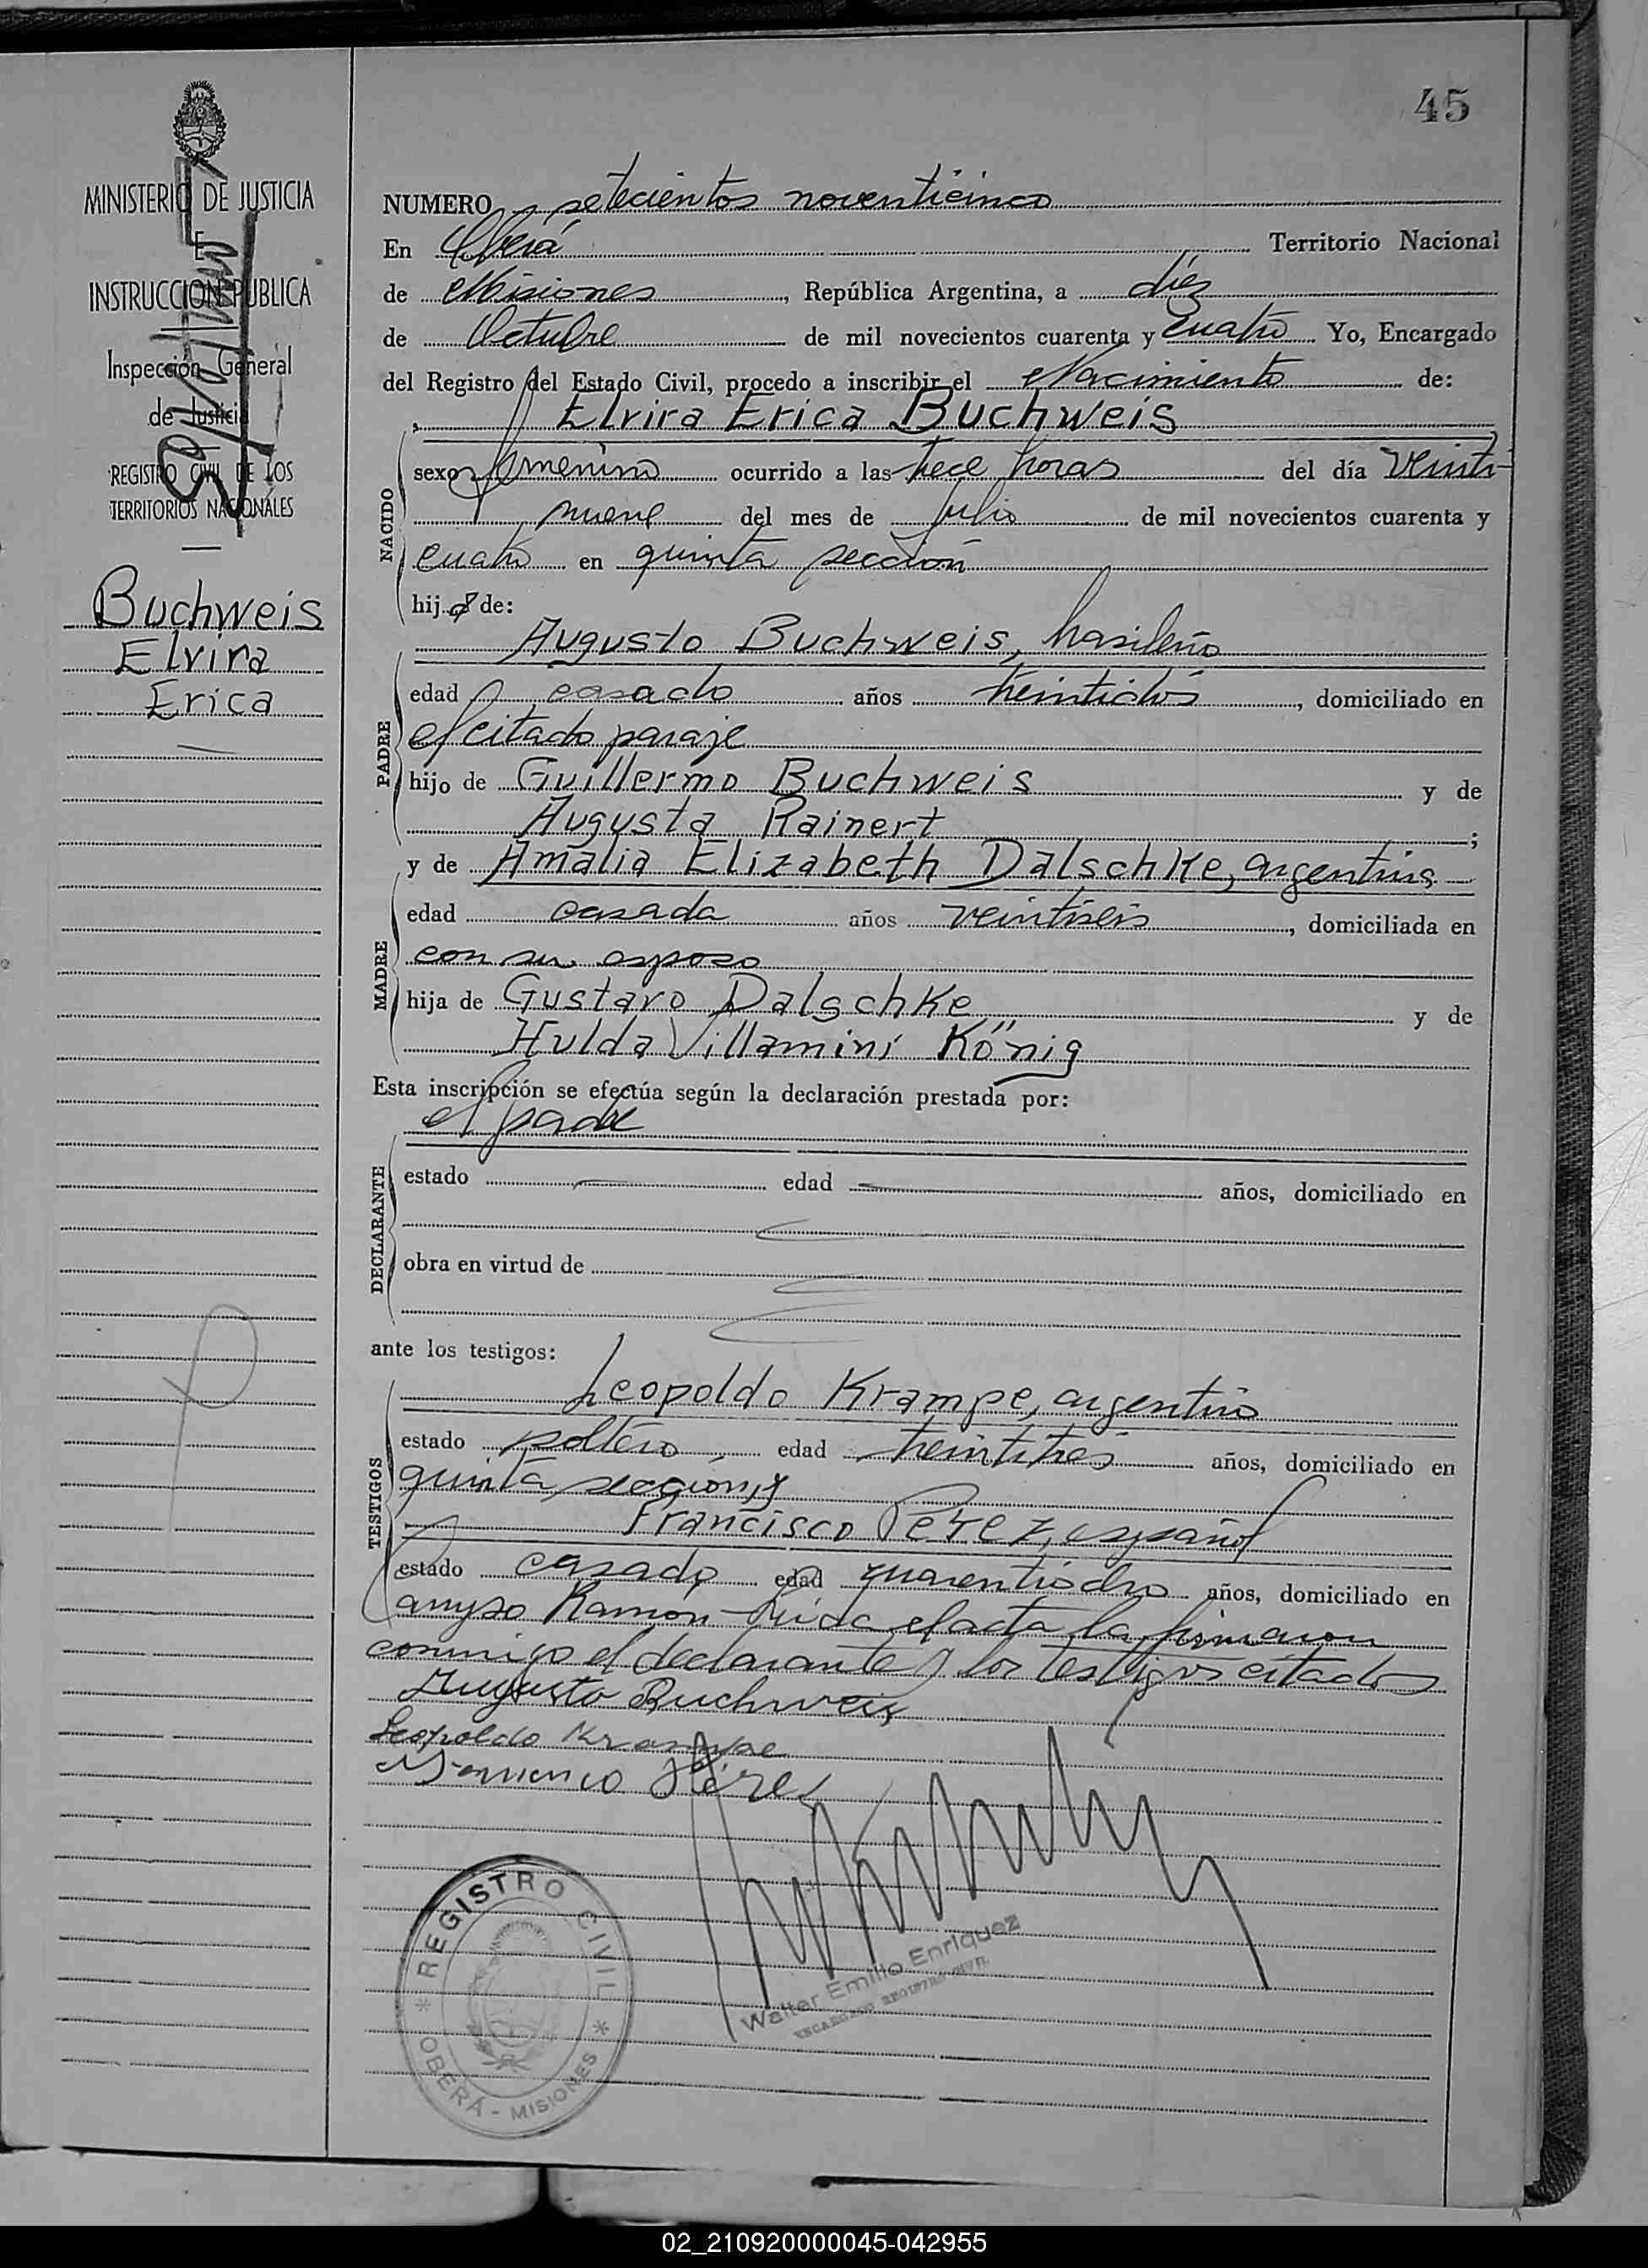 45
MINISTERIO DE JUSTICIA
E
INSTRUCCION PUBLICA
Inspección General
de Justicia
REGISTRO CIVIL DE LOS
TERRITORIOS NACIONALES
Buchweis
Elvira
Erica
NUMERO setecientos noventicinco
En Oberá Territorio Nacional
de Misiones, República Argentina, a diez
de Octubre de mil novecientos cuarenta y cuatro Yo, Encargado
del Registro del Estado Civil, procedo a inscribir el Nacimiento de:
Elvira Erica Buchweis
NACIDO
sexo femenino ocurrido a las trece horas del día veinti-
nueve del mes de julio de mil novecientos cuarenta y
cuatro en quinta sección
hija de:
Augusto Buchweis, brasileño
PADRE
edad casado años treintidós, domiciliado en
el citado paraje
hijo de Guillermo Buchweis y de
Augusta Rainert ;
y de Amalia Elizabeth Dalschke, argentina
MADRE
edad casada años veintiseis, domiciliada en
con su esposo
hija de Gustavo Dalschke y de
Hulda Villamini König
Esta inscripción se efectúa según la declaración prestada por:
el padre
DECLARANTE
estado edad años, domiciliado en
obra en virtud de
ante los testigos:
Leopoldo Krampe, argentino
TESTIGOS
estado soltero edad treintitres años, domiciliado en
quinta sección, y
Francisco Perez, español
estado casado edad cuarentiocho años, domiciliado en
arroyo Ramón leída el acta la firmaron
conmigo el declarante y los testigos citados
Augusto Buchweis
Leopoldo Krampe
Perez
REGISTRO CIVIL
OBERÁ - MISIONES
Walter Emilio Enriquez
ENCARGADO REGISTRO CIVIL
02_210920000045-042955